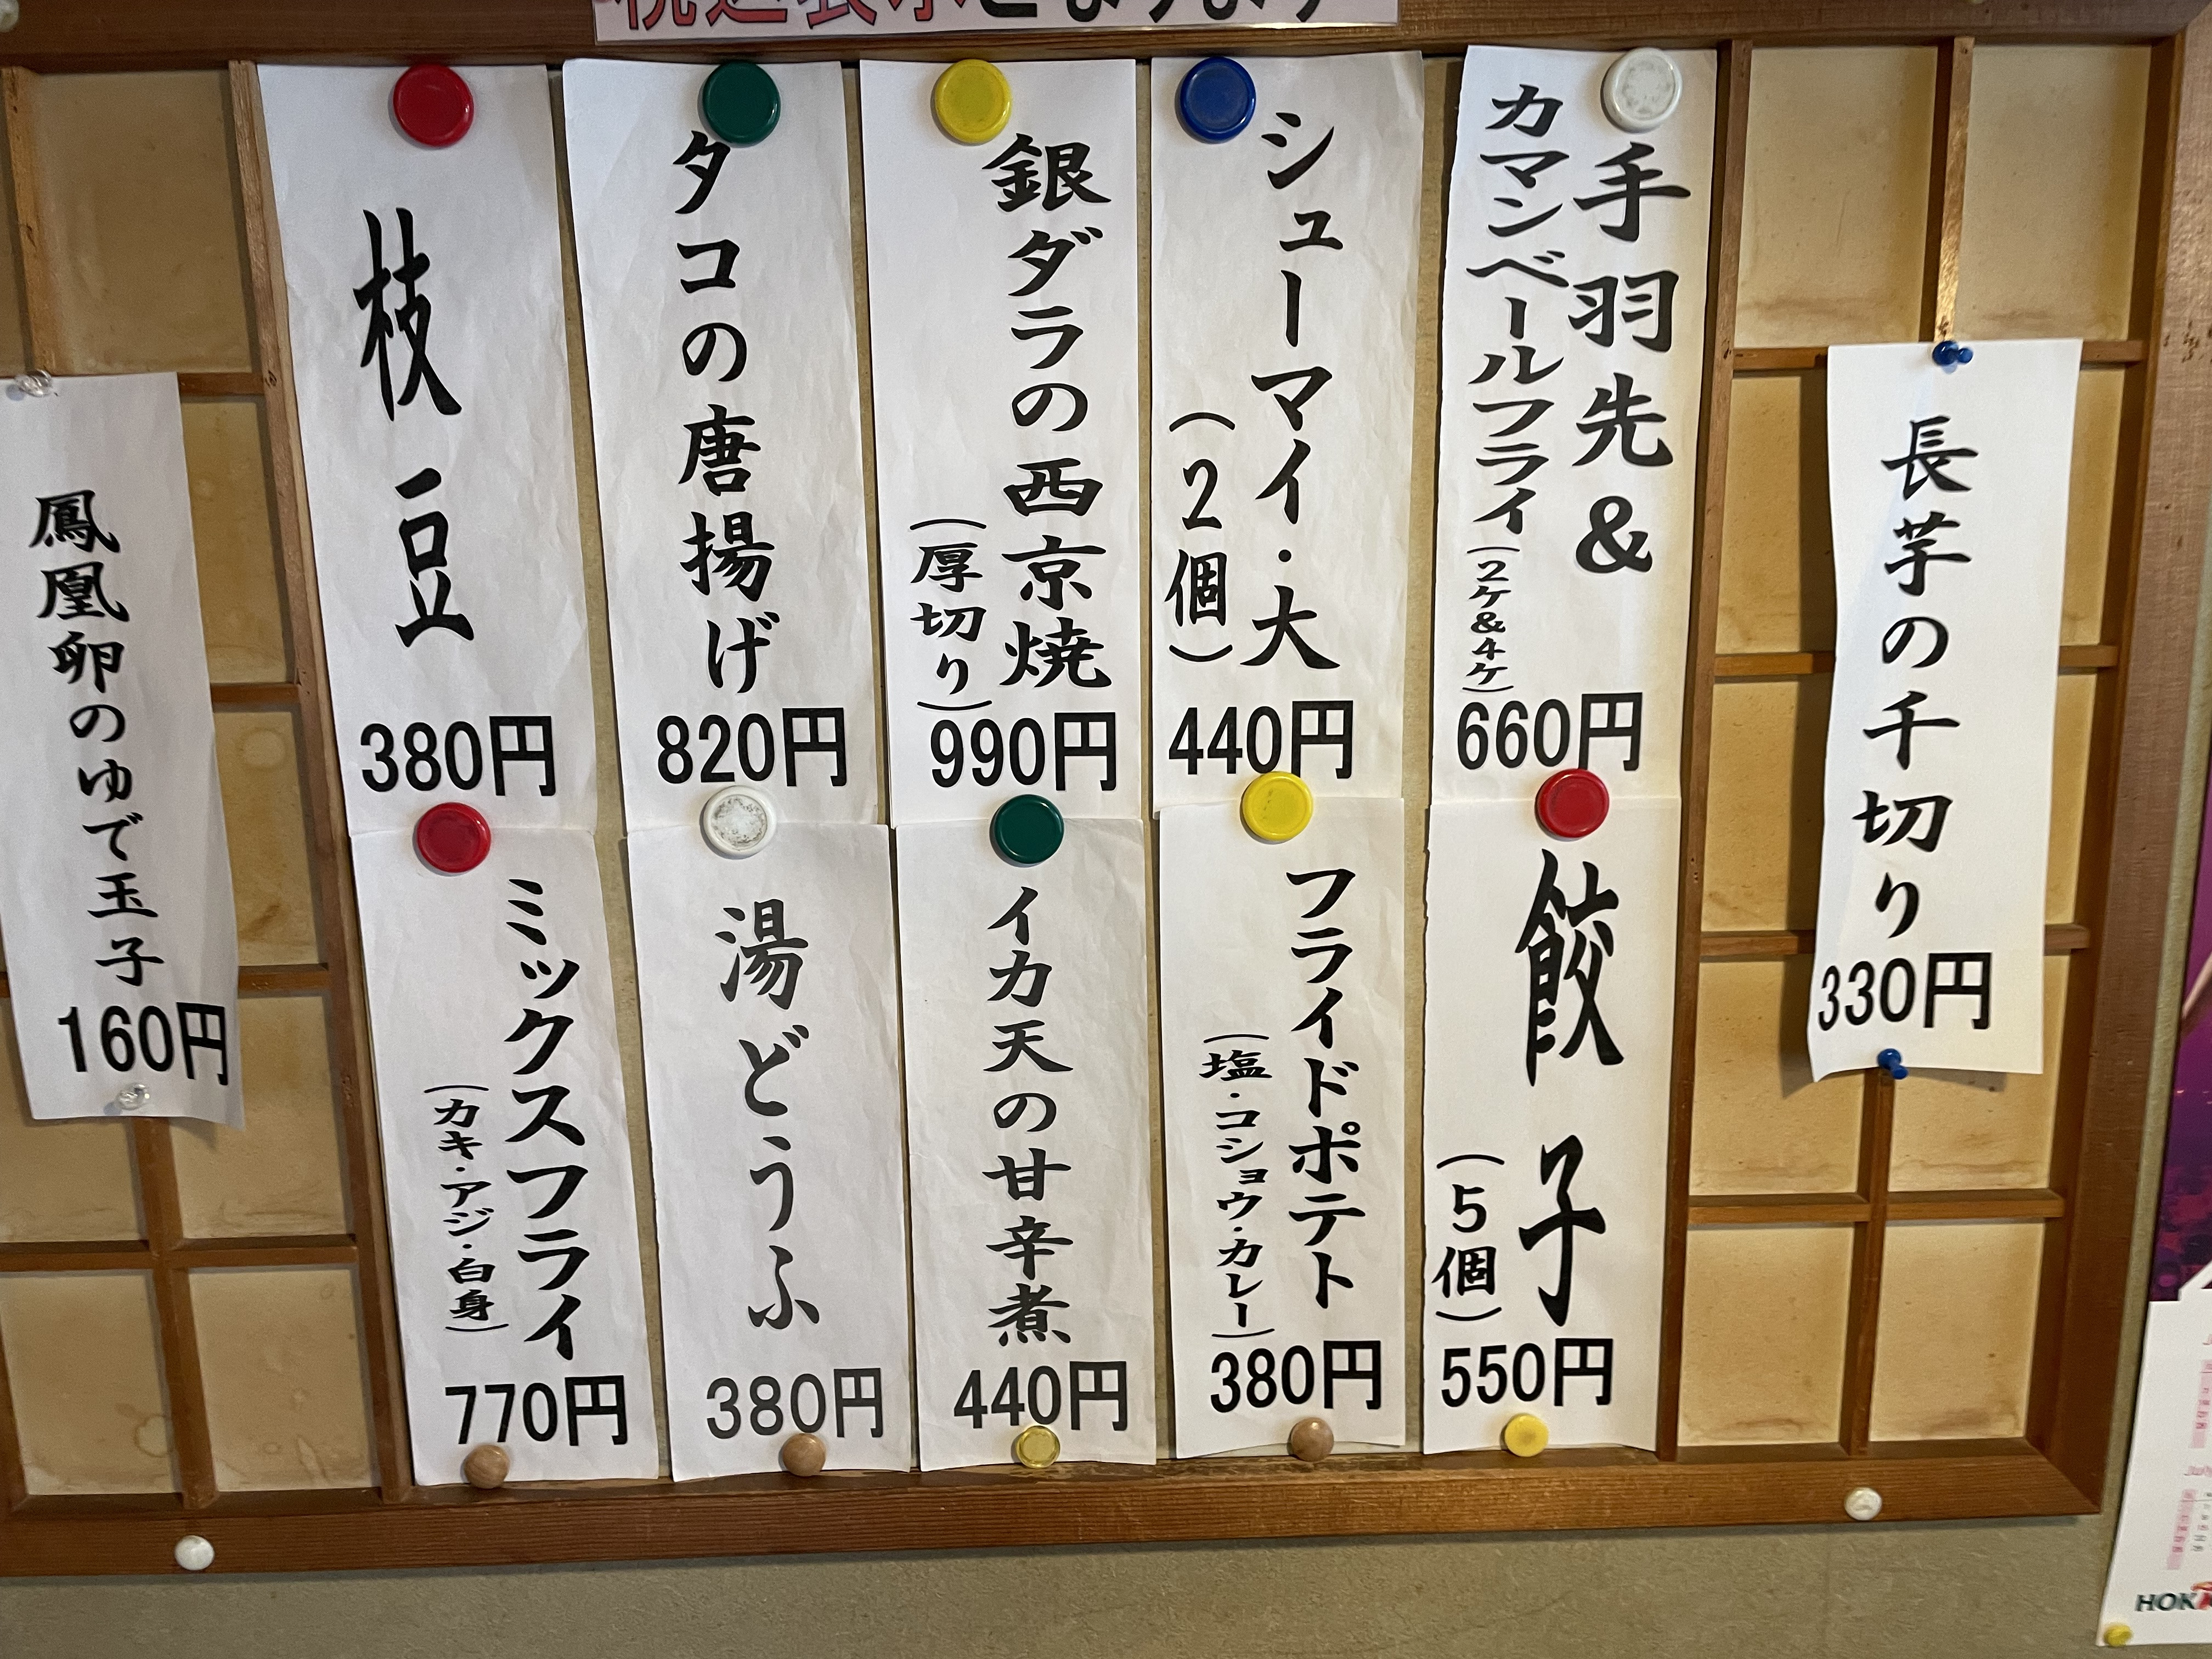 税込表示となります
長芋の千切り
330円
手羽先&
カマンベールフライ(2ケ&4ケ)
660円
シューマイ・大
(2個)
440円
銀ダラの西京焼
(厚切り)
990円
タコの唐揚げ
820円
枝豆
380円
餃子
(5個)
550円
フライドポテト
(塩・コショウ・カレー)
380円
イカ天の甘辛煮
440円
湯どうふ
380円
ミックスフライ
(カキ・アジ・白身)
770円
鳳凰卵のゆで玉子
160円